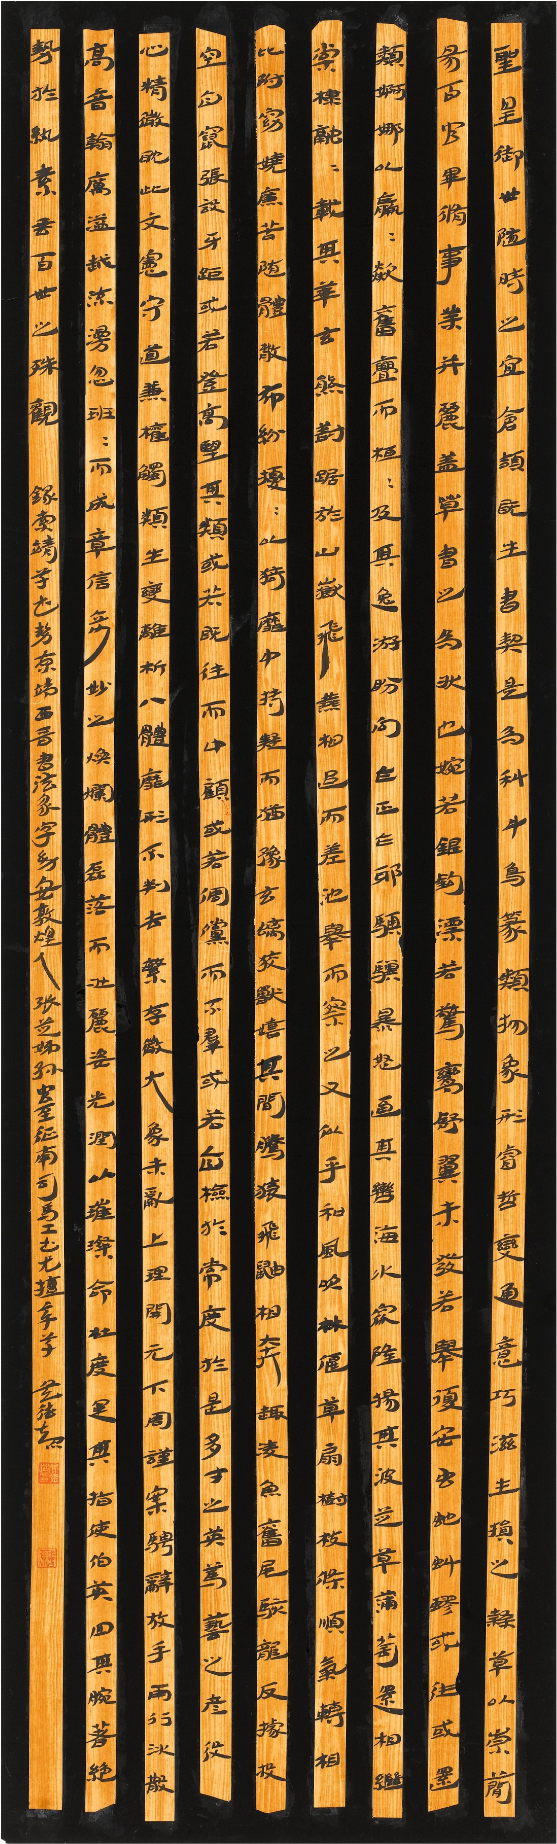 聖皇御世隨時之宜倉頡既生書契是為科斗鳥篆類物象形睿哲變通意巧滋生損之隸草以崇簡
易百官畢脩事業并麗蓋草書之為狀也婉若銀鉤漂若驚鸞舒翼未發若舉復安虫蛇虯蟉或往或還
類婀娜以羸〻歘奮亹而桓〻及其逸游盼向乍正乍邪騏驥暴怒逼其轡海水窊隆揚其波芝草蒲萄還相繼
棠棣融〻載其華玄熊對踞於山嶽飛燕相追而差池舉而察之又似乎和風吹林偃草扇樹枝條順氣轉相
比附窈嬈廉苫隨體散布紛擾〻以猗靡中持疑而猶豫玄螭狡獸嬉其間騰猿飛鼬相奔趣凌魚奮尾駭龍反據投
空自竄張設牙距或若登高望其類或若既往而中顧或若倜儻而不羣或若自檢於常度於是多才之英篤藝之彥役
心精微耽此文憲守道兼權觸類生變離析八體靡形不判去繁存微大象未亂上理開元下周謹案騁辭放手雨行冰散
高音翰厲溢越流漫忽班〻而成章信奇妙之煥爛體磊落而壯麗姿光潤以璀璨命杜度運其指使伯英回其腕著絕
勢於紈素垂百世之殊觀 錄索靖草書勢索靖西晉書法家字幼安敦煌人張芝姊孫官至征南司馬工書尤擅章草